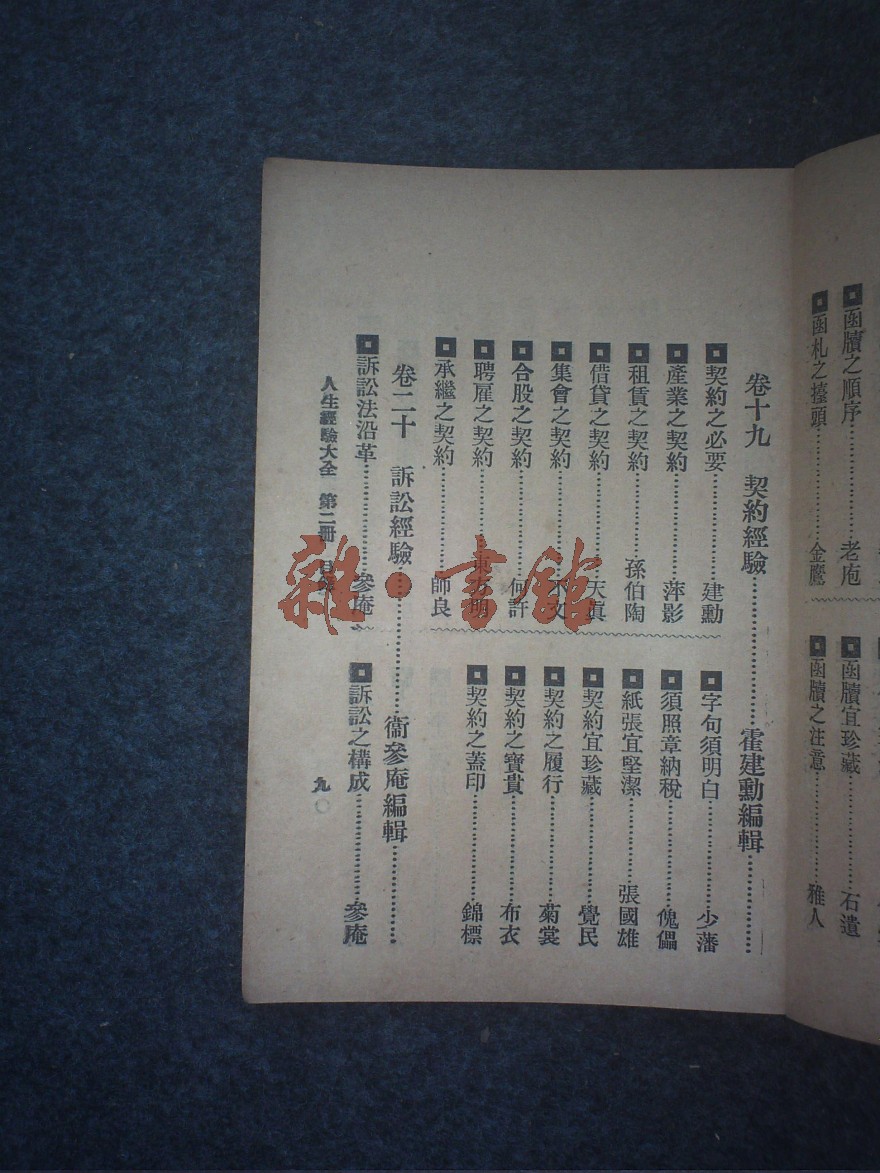 函牘之順序…………老庖
函牘宜珍藏…………石遺
函札之擡頭…………金鷹
函牘之注意…………雅人
卷十九 契約經驗…………霍建勳編輯…………
契約之必要…………建勳
產業之契約…………萍影
租賃之契約…………孫伯陶
借貸之契約…………天眞
集會之契約…………不文
合股之契約…………何許
聘雇之契約…………東方明
承繼之契約…………師良
字句須明白…………少藩
須照章納稅…………傀儡
紙張宜堅潔…………張國雄
契約宜珍藏…………覺民
契約之履行…………菊裳
契約之寶貴…………布衣
契約之蓋印…………錦標
卷二十 訴訟經驗…………衞參庵編輯…………
訴訟法沿革…………參庵
訴訟之構成…………參庵
人生經驗大全 第二册 目錄 九〇
雜·書館